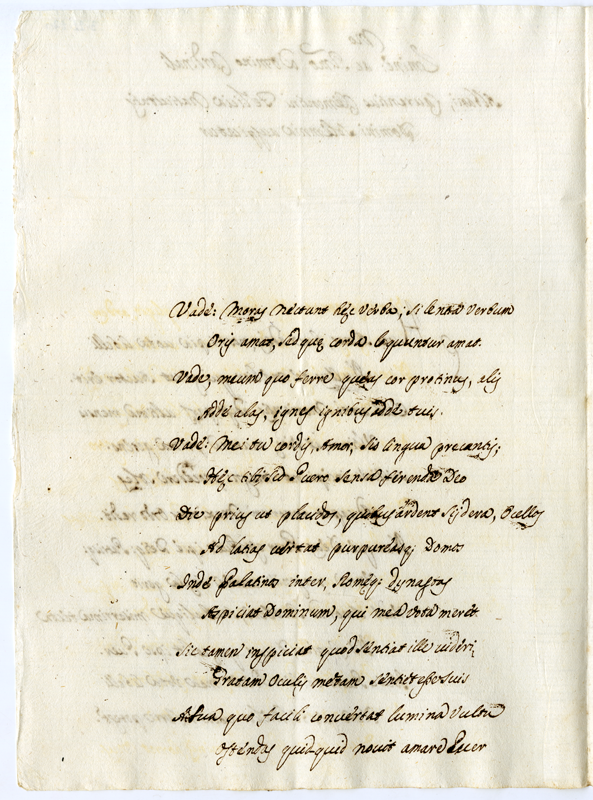 Vade: Moras nectunt hęc verba; silentia verbum
Oris amat, sed quę corda loquuntur amat.
Vade, meum quo ferre queas cor protinus, alis
Adde alas, ignes ignibus adde tuis.
Vade: Mei tu cordis, Amor, sis lingua precantis;
Hęc tibi sed Puero sensa ferenda Deo
Dic prius ut placidos, quibus ardent sydera, Ocellos
Ad latias vertat purpureasq; Domos
Inde Palatinos inter, Romęq; dynastas
Aspiciat Dominum, qui mea vota meret.
Sic tamen inspiciat quod sentiat ille videri,
Gratam Oculis metam sentit esse suis
At sua quo facili convertat lumina vultu
Ostendas quidquid novit amare Puer